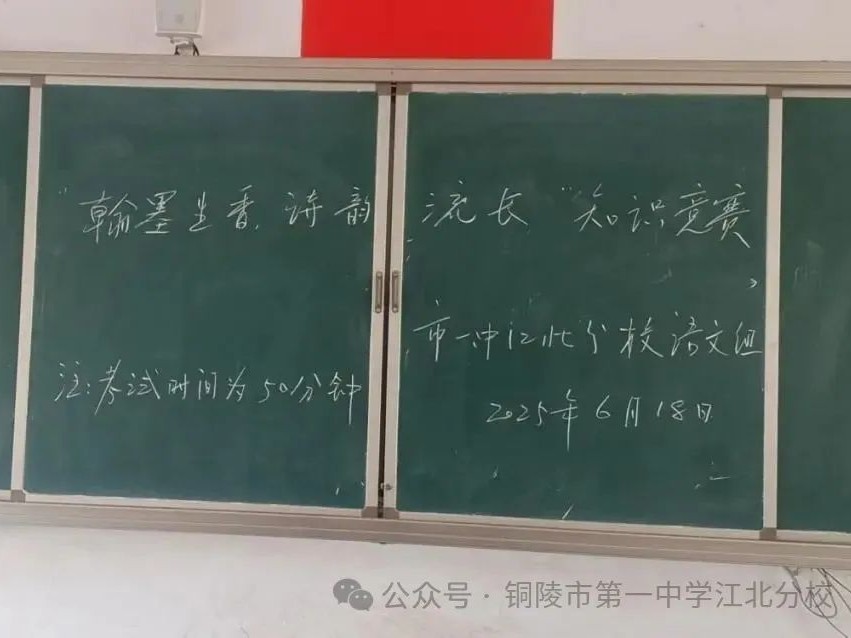 "翰墨生香,诗韵流长"知识竞赛
市一中江北分校语文组
注:考试时间为50分钟
2025年6月18日
公众号·铜陵市第一中学江北分校